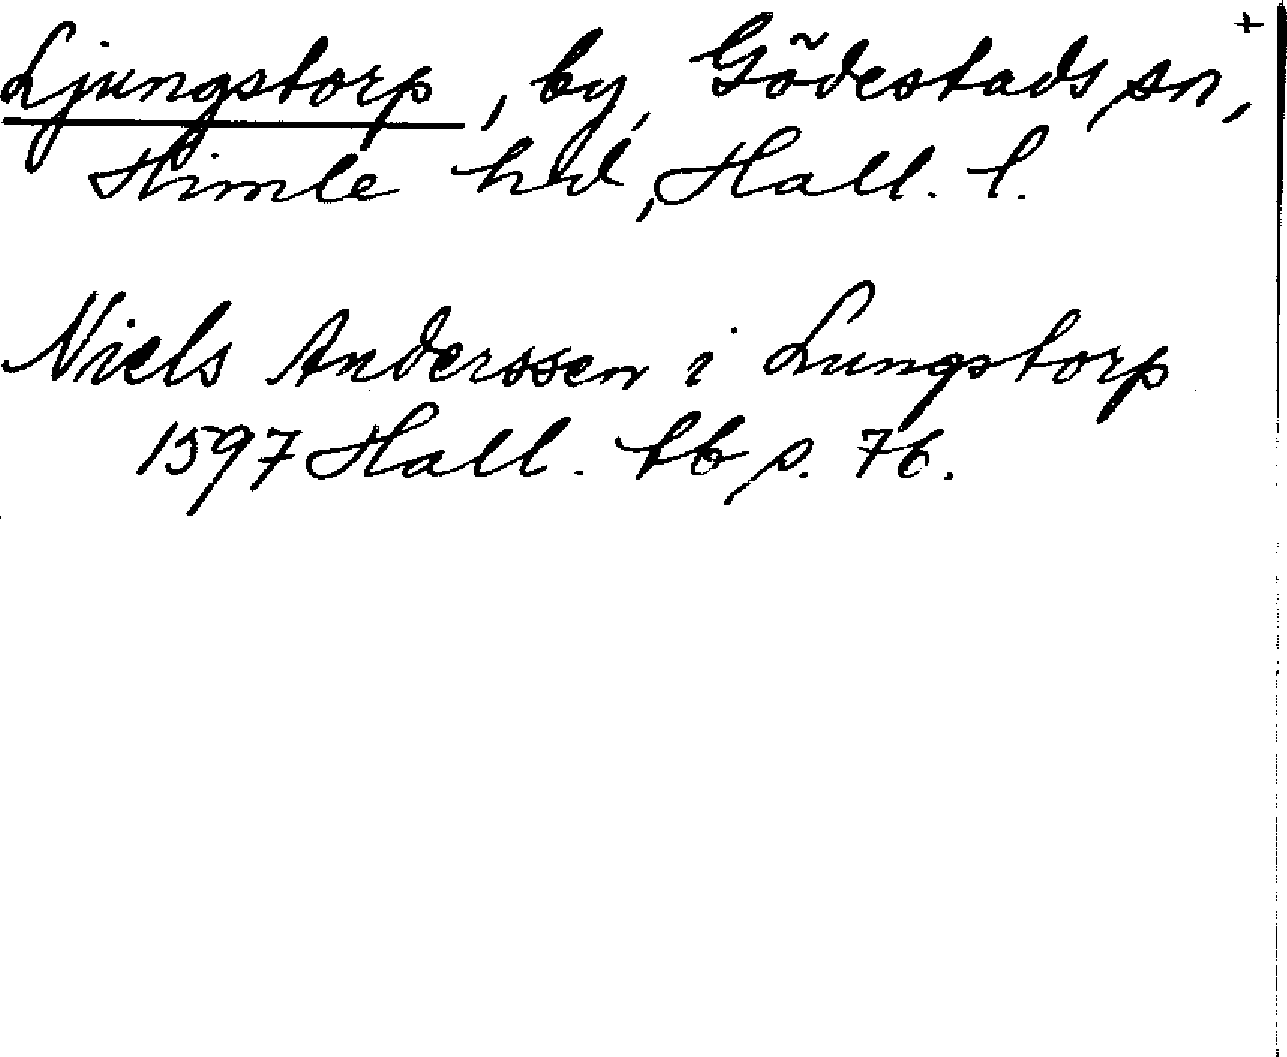 Ljungstorp, by, Gödestads sn, +
Himle hd, Hall. l.
Niels Anderssen i Lungstorp
1597 Hall. tb s. 76.